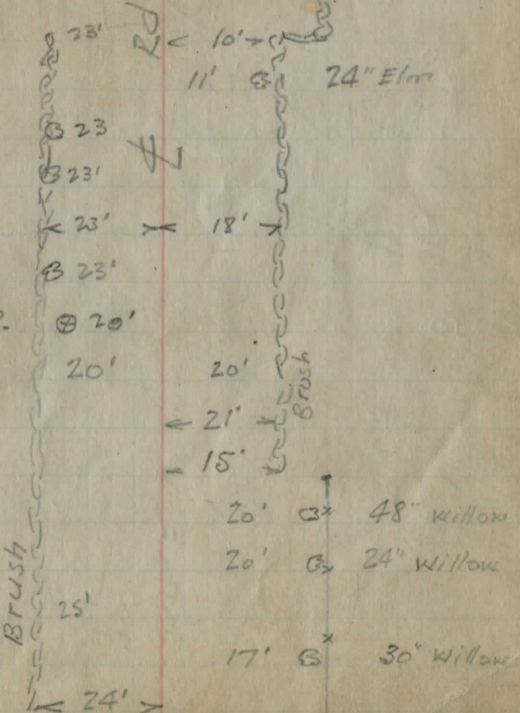 23' Rd 10'
11' 24" Elm
23
23'
23' 18'
23'
20'
20' 20'
Brush
21'
15'
20' 48" Willow
20' 24" Willow
Brush
25'
17' 30" Willow
24'